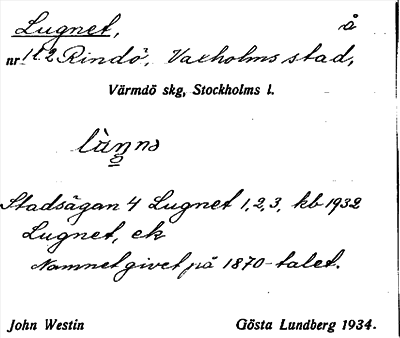 Lugnet, å
nr 1 t. 2 Rindö, Vaxholms stad,
Värmdö skg, Stockholms l.
Stadsägan 4 Lugnet 1,2,3, kb 1932
Lugnet, ek
Namnet givet på 1870-talet.
John Westin Gösta Lundberg 1934.